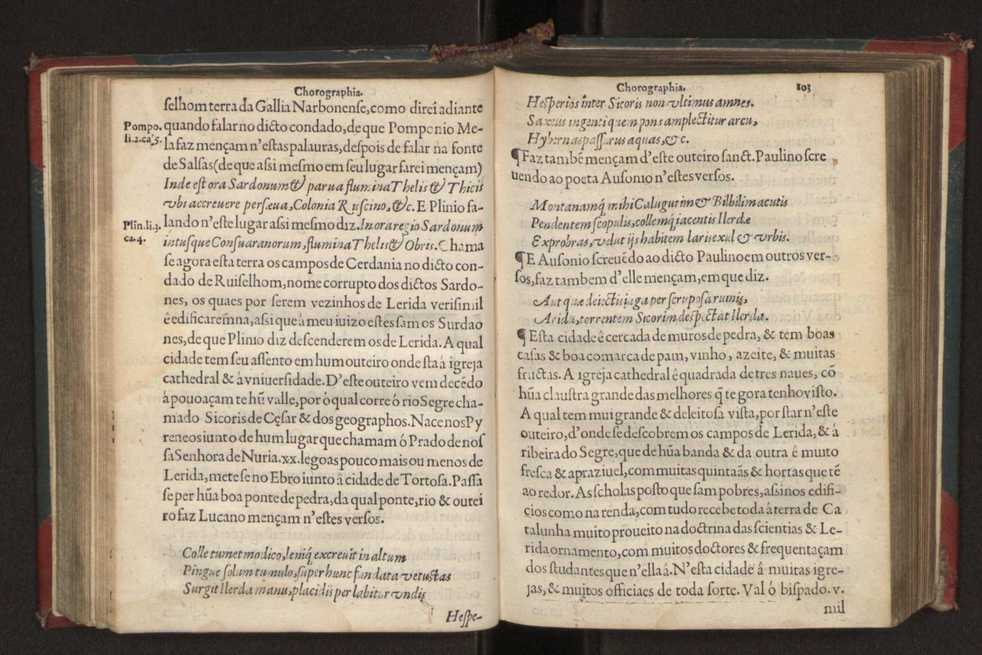 Chorographia.
selhom terra da Gallia Narbonense, como direi adiante
Pompo. quando falar no dicto condado, de que Pomponio Me-
li.2.ca.5. la faz mençam n'estas palauras, despois de falar na fonte
de Salsas (de que assi mesmo em seu lugar farei mençam)
Inde est ora Sardonum & parua flumina Thelis & Thicis
vbi accreuere persæua, Colonia Ruscino, &c. E Plinio fa-
Plin.li.3. lando n'este lugar assi mesmo diz. In ora regio Sardonum
ca.4. intusque Consuaranorum, flumina Thelis & Obris. Chama
se agora esta terra os campos de Cerdania no dicto con-
dado de Ruiselhom, nome corrupto dos dictos Sardo-
nes, os quaes por serem vezinhos de Lerida verisimil
é edificarẽna, assi que à meu iuizo estes sam os Surdao
nes, de que Plinio diz descenderem os de Lerida. A qual
cidade tem seu assento em hum outeiro onde sta á igreja
cathedral & á vniuersidade. D'este outeiro vem decẽdo
á pouoaçam te hũ valle, por ó qual corre ó rio Segre cha-
mado Sicoris de Cęsar & dos geographos. Nace nos Py
reneos iunto de hum lugar que chamam ó Prado de nos
sa Senhora de Nuria. xx. legoas pouco mais ou menos de
Lerida, mete se no Ebro iunto á cidade de Tortosa. Passa
se per hũa boa ponte de pedra, da qual ponte, rio & outei
ro faz Lucano mençam n'estes versos.
Colle tumet modico, leniq̃ excreuit in altum
Pingue solum tumulo, super hunc fundata vetustas
Surgit Ilerda manu, placidis per labitur vndis
Hespe-
Chorographia. 103
Hesperios inter Sicoris non vltimus amnes.
Saxeus ingenti quem pons amplectitur arcu,
Hybernas passurus aquas, &c.
¶ Faz tambẽ mençam d'este outeiro sanct. Paulino scre
uendo ao poeta Ausonio n'estes versos.
Montanamq̃ mihi Calugurim & Bilbilim acutis
Pendentem scopulis, collemq̃ iacentis Ilerdæ
Exprobras, velut ijs habitem laris exul & vrbis.
¶ E Ausonio screuẽdo ao dicto Paulino em outros ver-
sos, faz tambem d'elle mençam, em que diz.
Aut quæ deiectis iuga per scruposa ruinis,
Arida, torrentem Sicorim despectat Ilerda.
¶ Esta cidade é cercada de muros de pedra, & tem boas
casas & boa comarca de pam, vinho, azeite, & muitas
fructas. A igreja cathedral é quadrada de tres naues, cõ
hũa claustra grande das melhores q̃ te gora tenho visto.
A qual tem mui grande & deleitosa vista, por star n'este
outeiro, d'onde se descobrem os campos de Lerida, & á
ribeira do Segre, que de hũa banda & da outra é muito
fresca & apraziuel, com muitas quintaãs & hortas que tẽ
ao redor. As scholas posto que sam pobres, assi nos edifi-
cios como na renda, com tudo recebe toda á terra de Ca
talunha muito proueito na doctrina das scientias & Le-
rida ornamento, com muitos doctores & frequentaçam
dos studantes que n'ella á. N'esta cidade á muitas igre-
jas, & muitos officiaes de toda sorte. Val ó bispado. v.
mil